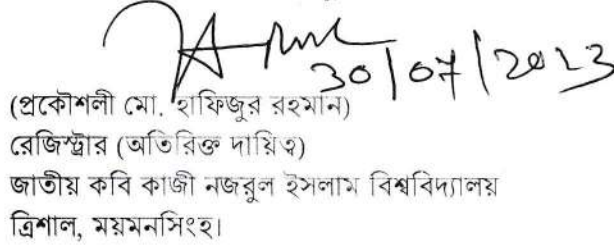 30/07/2023
(প্রকৌশলী মো. হাফিজুর রহমান)
রেজিস্ট্রার (অতিরিক্ত দায়িত্ব)
জাতীয় কবি কাজী নজরুল ইসলাম বিশ্ববিদ্যালয়
ত্রিশাল, ময়মনসিংহ।